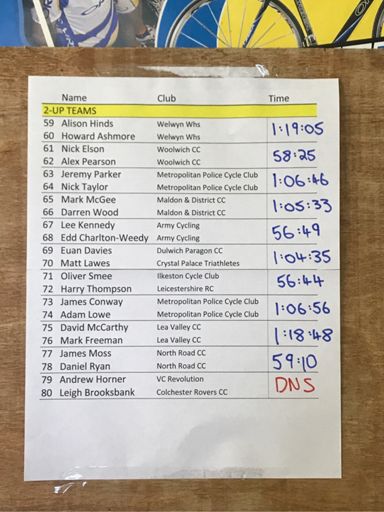 Name Club Time
2-UP TEAMS
59 Alison Hinds Welwyn Whs 1:19:05
60 Howard Ashmore Welwyn Whs
61 Nick Elson Woolwich CC 58:25
62 Alex Pearson Woolwich CC
63 Jeremy Parker Metropolitan Police Cycle Club 1:06:46
64 Nick Taylor Metropolitan Police Cycle Club
65 Mark McGee Maldon & District CC 1:05:33
66 Darren Wood Maldon & District CC
67 Lee Kennedy Army Cycling 56:49
68 Edd Charlton-Weedy Army Cycling
69 Euan Davies Dulwich Paragon CC 1:04:35
70 Matt Lawes Crystal Palace Triathletes
71 Oliver Smee Ilkeston Cycle Club 56:44
72 Harry Thompson Leicestershire RC
73 James Conway Metropolitan Police Cycle Club 1:06:56
74 Adam Lowe Metropolitan Police Cycle Club
75 David McCarthy Lea Valley CC 1:18:48
76 Mark Freeman Lea Valley CC
77 James Moss North Road CC 59:10
78 Daniel Ryan North Road CC
79 Andrew Horner VC Revolution DNS
80 Leigh Brooksbank Colchester Rovers CC